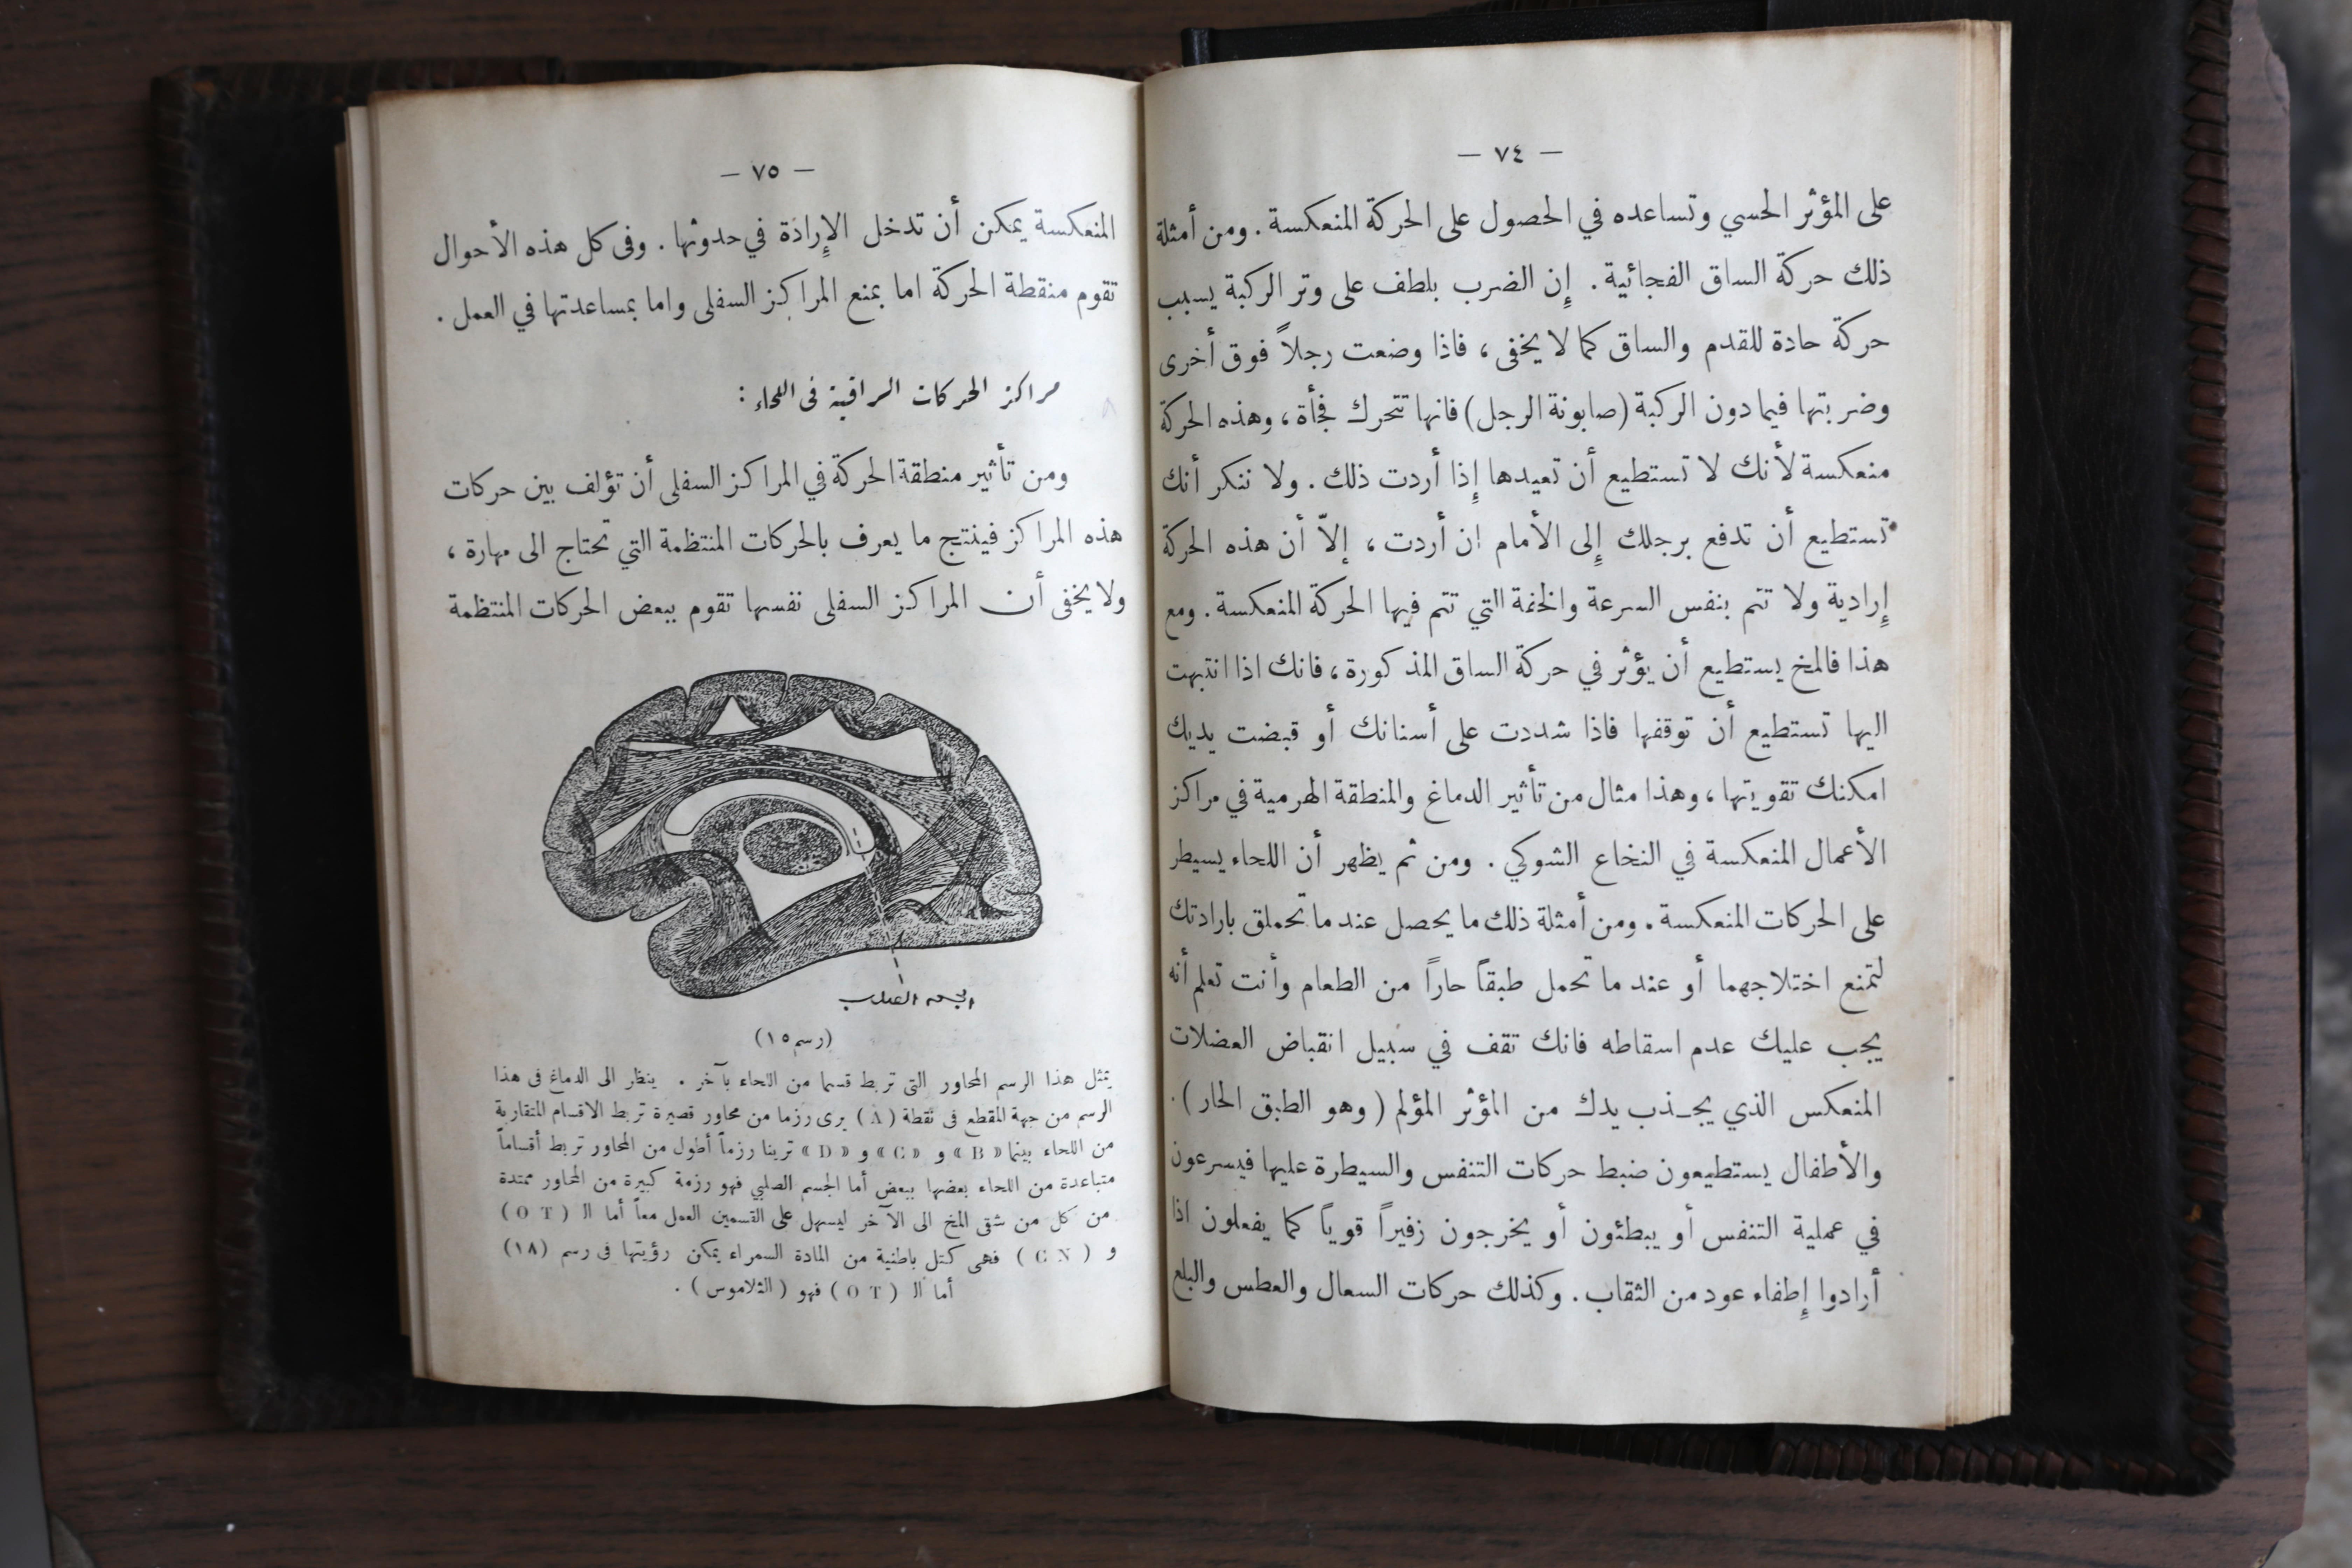 — ٧٤ —
على المؤثر الحسي وتساعده في الحصول على الحركة المنعكسة . ومن أمثلة
ذلك حركة الساق الفجائية . إِن الضرب بلطف على وتر الركبة يسبب
حركة حادة للقدم والساق كما لا يخفى ، فاذا وضعت رجلاً فوق أخرى
وضربتها فيما دون الركبة (صابونة الرجل) فانها تتحرك فجأة ، وهذه الحركة
منعكسة لأنك لا تستطيع أن تعيدها إِذا أردت ذلك . ولا ننكر أنك
تستطيع أن تدفع برجلك إِلى الأمام إن أردت ، إلاّ أن هذه الحركة
إِرادية ولا تتم بنفس السرعة والخفة التي تتم فيها الحركة المنعكسة . ومع
هذا فالمخ يستطيع أن يؤثر في حركة الساق المذكورة ، فانك اذا انتبهت
اليها تستطيع أن توقفها فاذا شددت على أسنانك أو قبضت يديك
امكنك تقويتها ، وهذا مثال من تأثير الدماغ والمنطقة الهرمية في مراكز
الأعمال المنعكسة في النخاع الشوكي . ومن ثم يظهر أن اللحاء يسيطر
على الحركات المنعكسة . ومن أمثلة ذلك ما يحصل عند ما تحملق بارادتك
لتمنع اختلاجهما أو عند ما تحمل طبقاً حاراً من الطعام وأنت تعلم أنه
يجب عليك عدم اسقاطه فانك تقف في سبيل انقباض العضلات
المنعكس الذي يجـذب يدك من المؤثر المؤلم ( وهو الطبق الحار ) .
والأطفال يستطيعون ضبط حركات التنفس والسيطرة عليها فيسرعون
في عملية التنفس أو يبطئون أو يخرجون زفيراً قوياً كما يفعلون اذا
أرادوا إِطفاء عود من الثقاب . وكذلك حركات السعال والعطس والبلع
— ٧٥ —
المنعكسة يمكن أن تدخل الإِرادة في حدوثها . وفى كل هذه الأحوال
تقوم منقطة الحركة اما بمنع المراكز السفلى واما بمساعدتها في العمل .
مراكز الحركات الراقية فى اللحاء :
ومن تأثير منطقة الحركة في المراكز السفلى أن تؤلف بين حركات
هذه المراكز فينتج ما يعرف بالحركات المنتظمة التي تحتاج الى مهارة ،
ولا يخفى أن المراكز السفلى نفسها تقوم ببعض الحركات المنتظمة
الجسم الصلب
(رسم ١٥)
يمثل هذا الرسم المحاور التى تربط قسما من اللحاء بآخر . ينظر الى الدماغ فى هذا
الرسم من جهة المقطع فى نقطة ( A ) يرى رزما من محاور قصيرة تربط الاقسام المتقاربة
من اللحاء بينما « B » و « C » و « D » ترينا رزماً أطول من المحاور تربط أقساماً
متباعدة من اللحاء بعضها ببعض أما الجسم الصلبي فهو رزمة كبيرة من المحاور ممتدة
من كل من شقى المخ الى الآخر ليسهل على القسمين العمل معاً أما الـ ( O T )
و ( C N ) فهى كتل باطنية من المادة السمراء يمكن رؤيتها فى رسم (١٨)
أما الـ ( O T ) فهو ( الثلاموس ) .